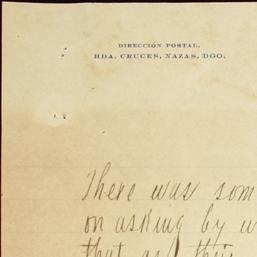 DIRECCIÓN POSTAL,
HDA. CRUCES, NAZAS, DGO.
There was som
on asking by w
that as their